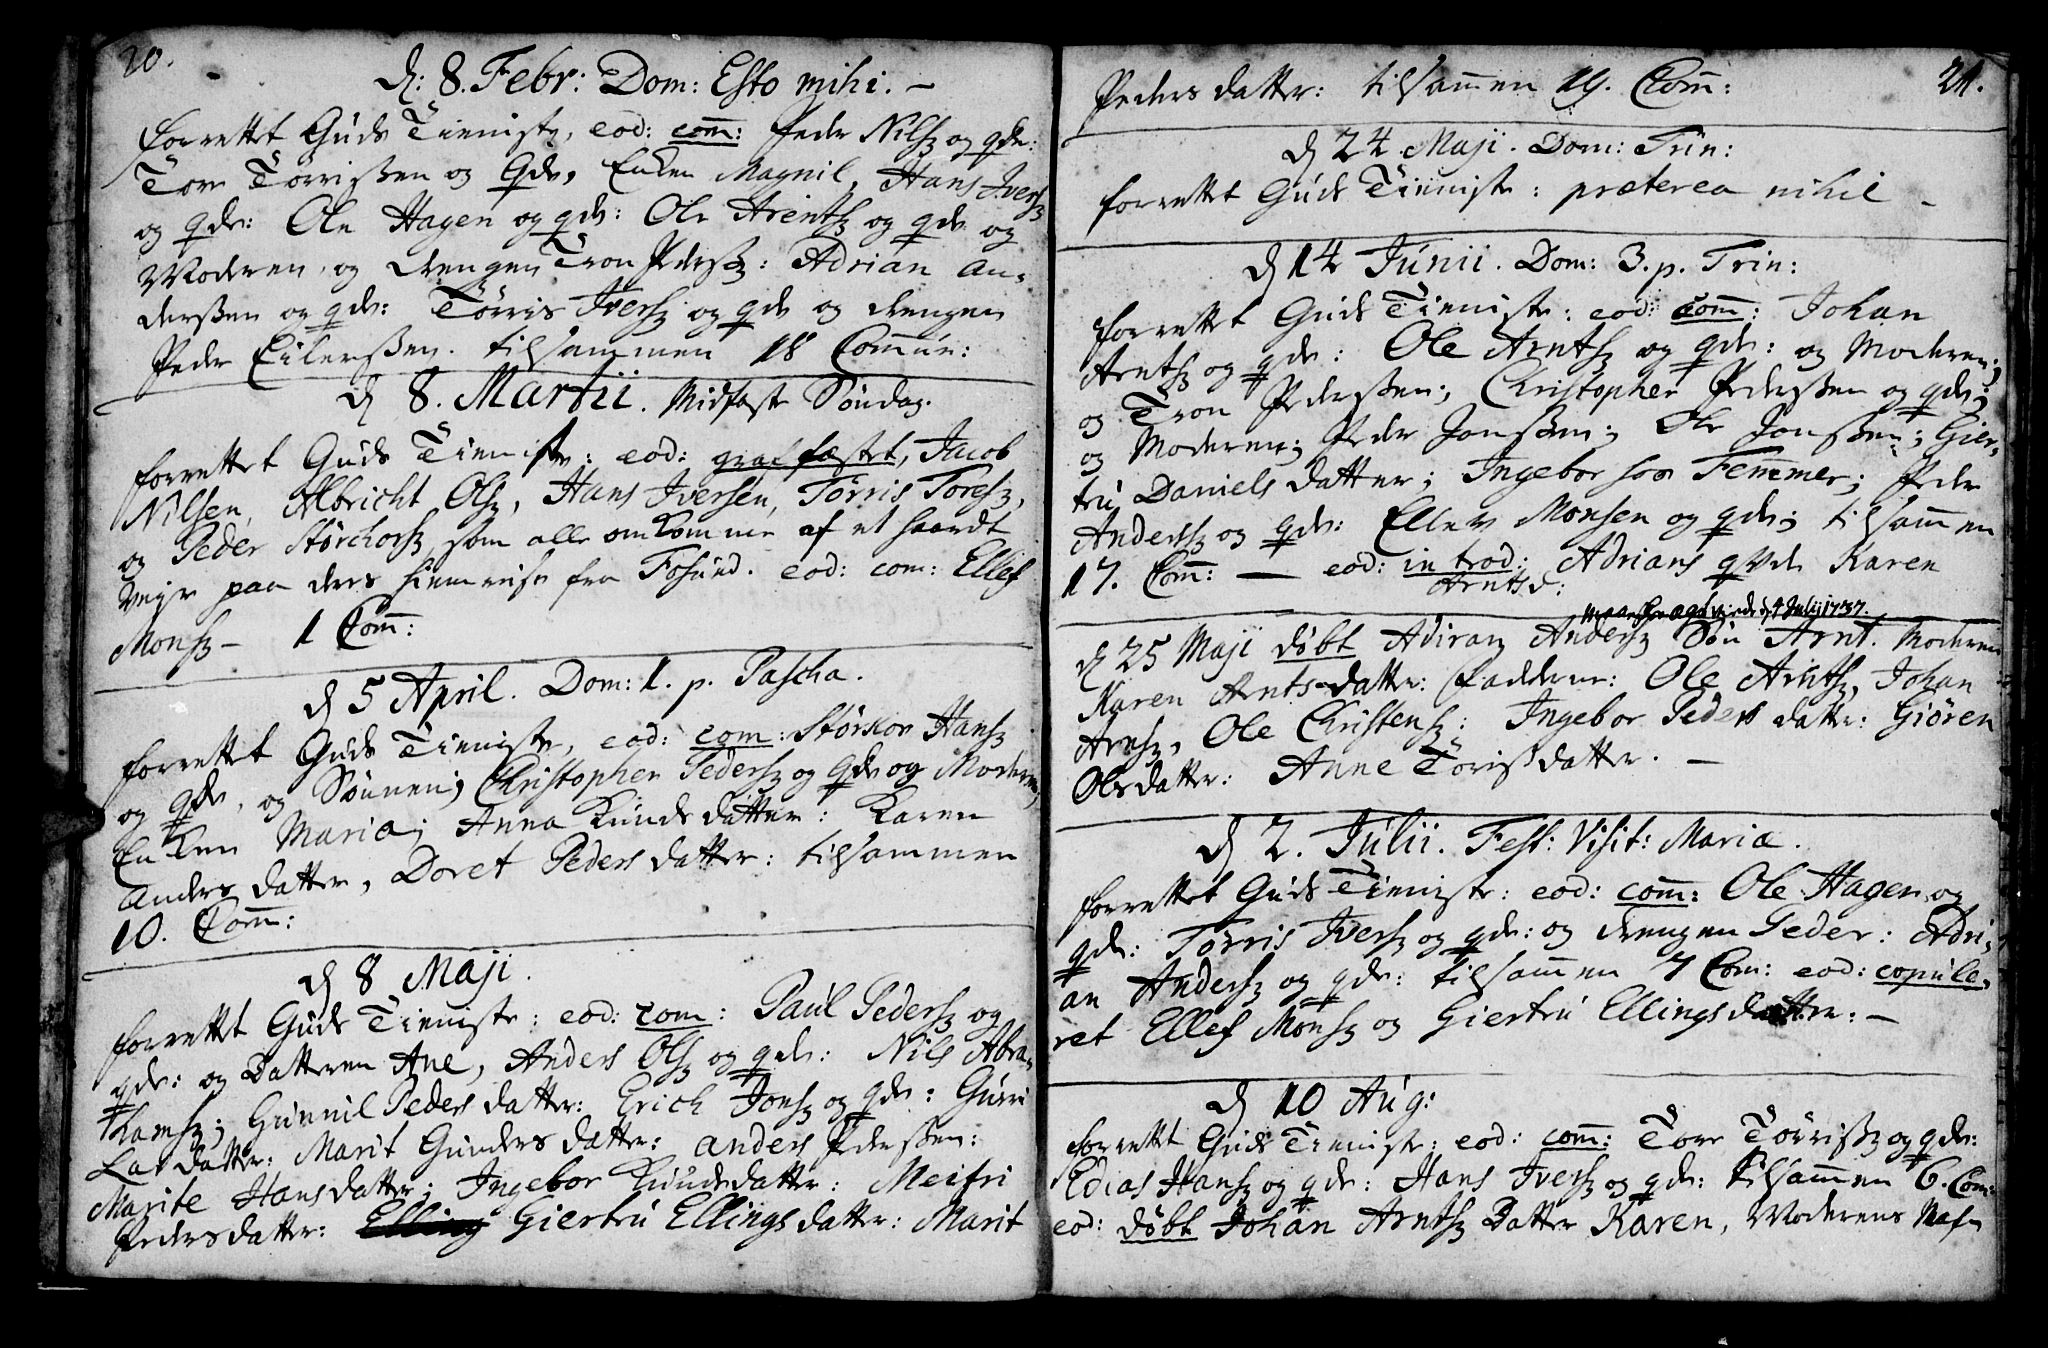 20.
d: 8. Febr: Dom: Esto mihi. –
forrettet Guds Tieniste, eod: com: Peder Nilsz og qde:
Tore Tørrissen og Qde, Enken Magnil, Hans Iversz
og qde: Ole Hagen og qde: Ole Arentsz og qde og
Moderen, og drengen Tron Pedersz: Adrian An-
derssen og qde: Tørris Iversz og qde og drengen
Peder Eilerssen. tilsammen 18 Commun:
d 8. Martii. Midfaste Søndag.
forrettet Guds Tieniste: eod: graffæstet, Jacob
Nilsen, Albricht Olsz, Hans Iversen, Tørris Toresz,
og Peder Størchorsz, som alle omkomme af et haardt
Vejr paa deres hiemreise fra Fosund. eod: com: Ellef
Monsz – 1 Com:
d 5 April. Dom: 1. p. Pascha.
forrettet Guds Tieniste, eod: com: Størkor Hansz
og qde, og Sønnen; Christopher Pedersz og qde og Moderen;
Enken Maria; Anna Knuds datter: Karen
Anders datter, Doret Peders datter: tilsammen
10. Com:
d 8 Maji.
forrettet Guds Tieniste: eod: com: Paul Pedersz og
qde: og Datteren Ane, Anders Olsz og qde: Nils Abra-
hamsz; Gunnil Peders datter: Erich Jonsz og qde: Gurri
Lar datter: Marit Gunders datter: anders Pederssen:
Marite Hans datter; Ingebor Knudsdatter: Meifri
Pedersdatter: Elling Giertru Ellings datter: Marit
21.
Peders datter: tilsammen 19. Com:
d 24. Maji. Dom: Trin:
forrettet Guds Tieniste: præterea nihil –
d 14 Junii. Dom: 3. p. Trin:
forrettet Guds Tieniste: eod: com: Johan
Arntsz og qde: Ole Arntsz og qde: og Moderen;
og Tron Pederssen; Christopher Pederssen og qde;
og Moderen; Peder Jonssen; Ole Jonssen; Gier-
tru Daniels datter; Ingebor hos Femmer; Peder
Andersz og qde: Ellev Monsen og qde; tilsammen
17. Com: — eod: introd: Adrians qvde Karen
Arntsd:
d 4 Julij 1737.
d 25 Maji døbt Adiran Andersz Søn Arnt. Moderen
Karen Arnts-datter: Fadderne: Ole Arntsz, Johan
Arnsz, Ole Christensz: Ingebor Peders datter: Giøren
Olsdatter: Anne Tørisdatter. –
d 2. Julii. Fest: Visit: Mariæ.
forrettet Guds Tieniste: eod: com: Ole Hagen og
qde: Tørris Iversz og qde: og drengen Peder: Adri-
an Andersz og qde: tilsammen 7 Com: eod: copule-
ret Ellef Monsz og Giertru Ellings datter: –
d 10 Aug:
forrettet Guds Tieniste: eod: com: Tore Tørrissz og qde:
Edias Hansz og qde: Hans Iversz og qde: tilsammen 6. Com:
eod: døbt Johan Arntsz Datter Karen, Moderens Nafn